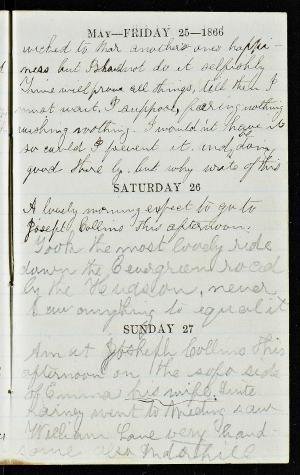 May—FRIDAY 25—1866
wicked to mar another's ones happi-
ness but I shad not do it selfishly
Time will prove all things, till then I
must wait. I suppose, fearing nothing
wishing nothing. I would'nt have it
so could I prevent it. and, doing
good there by. but why write of this
SATURDAY 26
A lovely morning expect to go to
Joseph Collins this afternoon.
Took the most lovely ride
down the Evergreen road
by the Hudson, never
saw anything to equal it
SUNDAY 27
Am at Josheph Collins this
afternoon on the sofa side
of Emma his wife.
went to Meeting saw
William Lane very hand-
some also